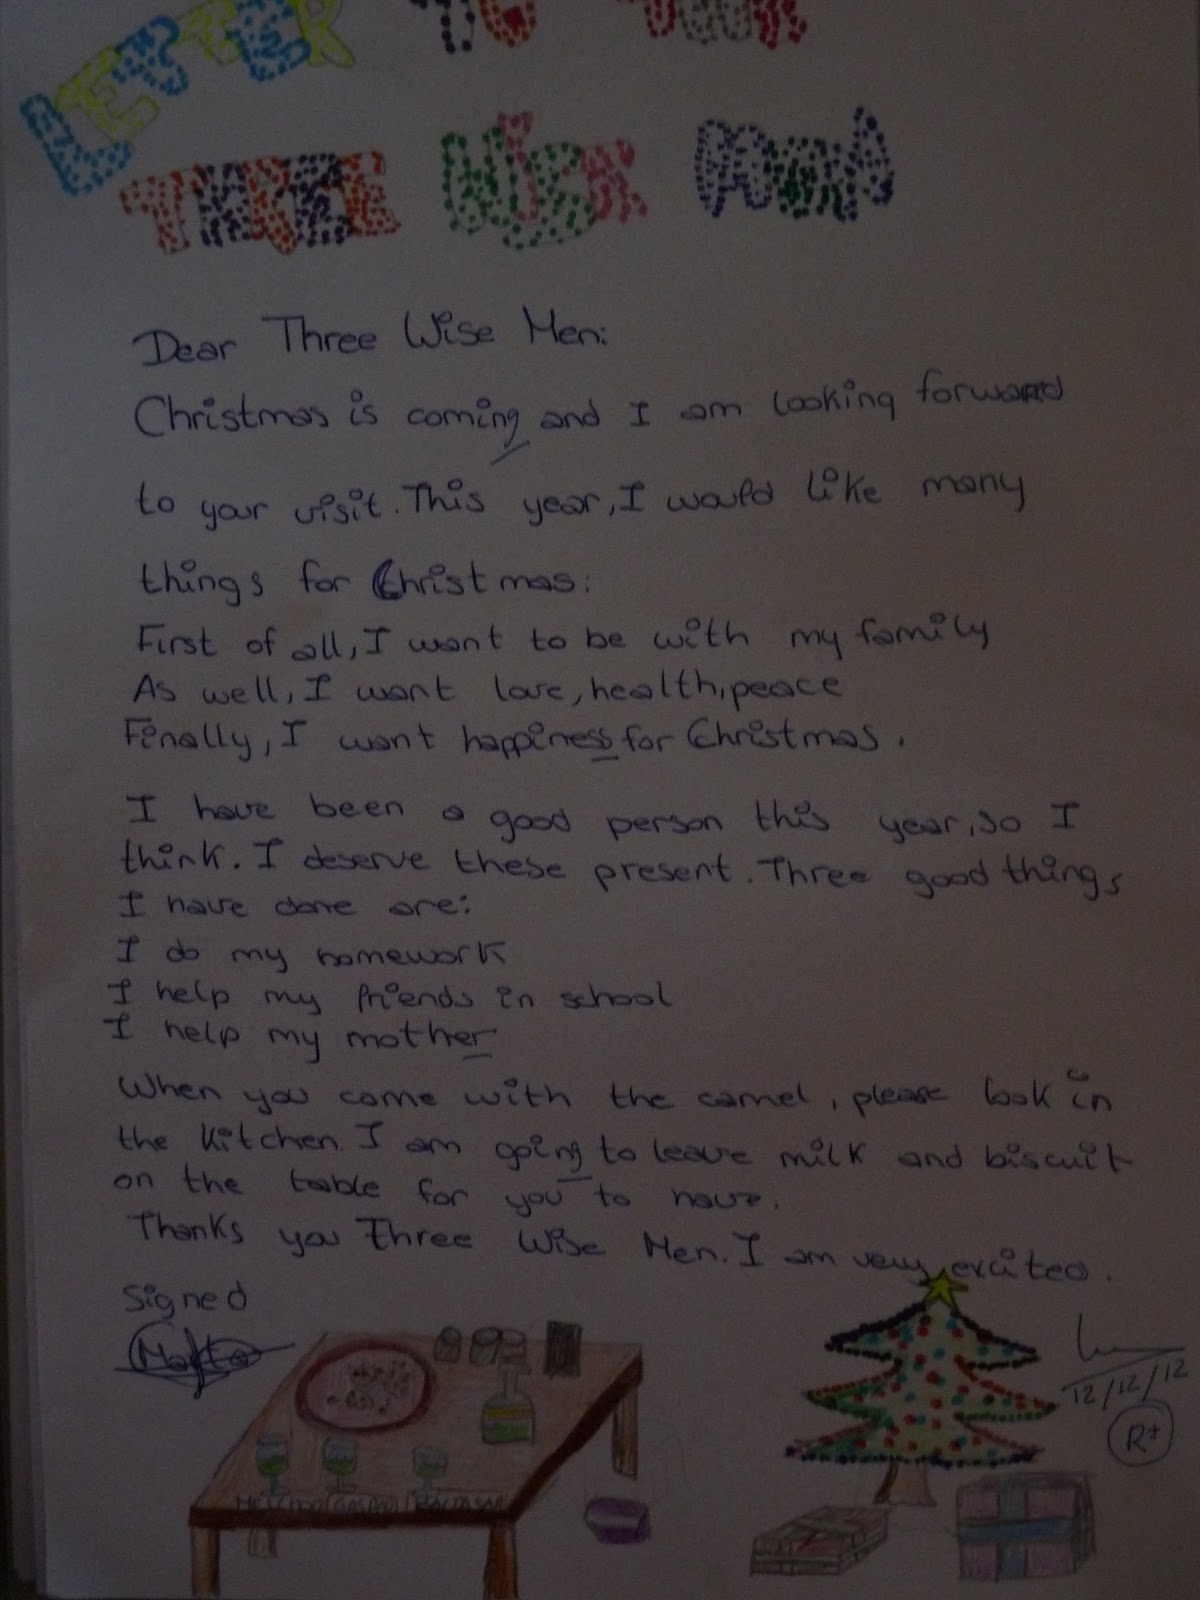 LETTER TO THE
THREE WISE MEN
Dear Three Wise Men:
Christmas is coming and I am looking forward
to your visit. This year, I would like many
things for Christmas:
First of all, I want to be with my family
As well, I want love, health, peace
Finally, I want happiness for Christmas.
I have been a good person this year, so I
think. I deserve these present. Three good things
I have done are:
I do my homework
I help my friends in school
I help my mother
When you come with the camel, please look in
the kitchen. I am going to leave milk and biscuit
on the table for you to have.
Thanks you Three Wise Men. I am very excited.
Signed
Marta
12/12/12
R+
MELCHOR GASPAR BALTASAR